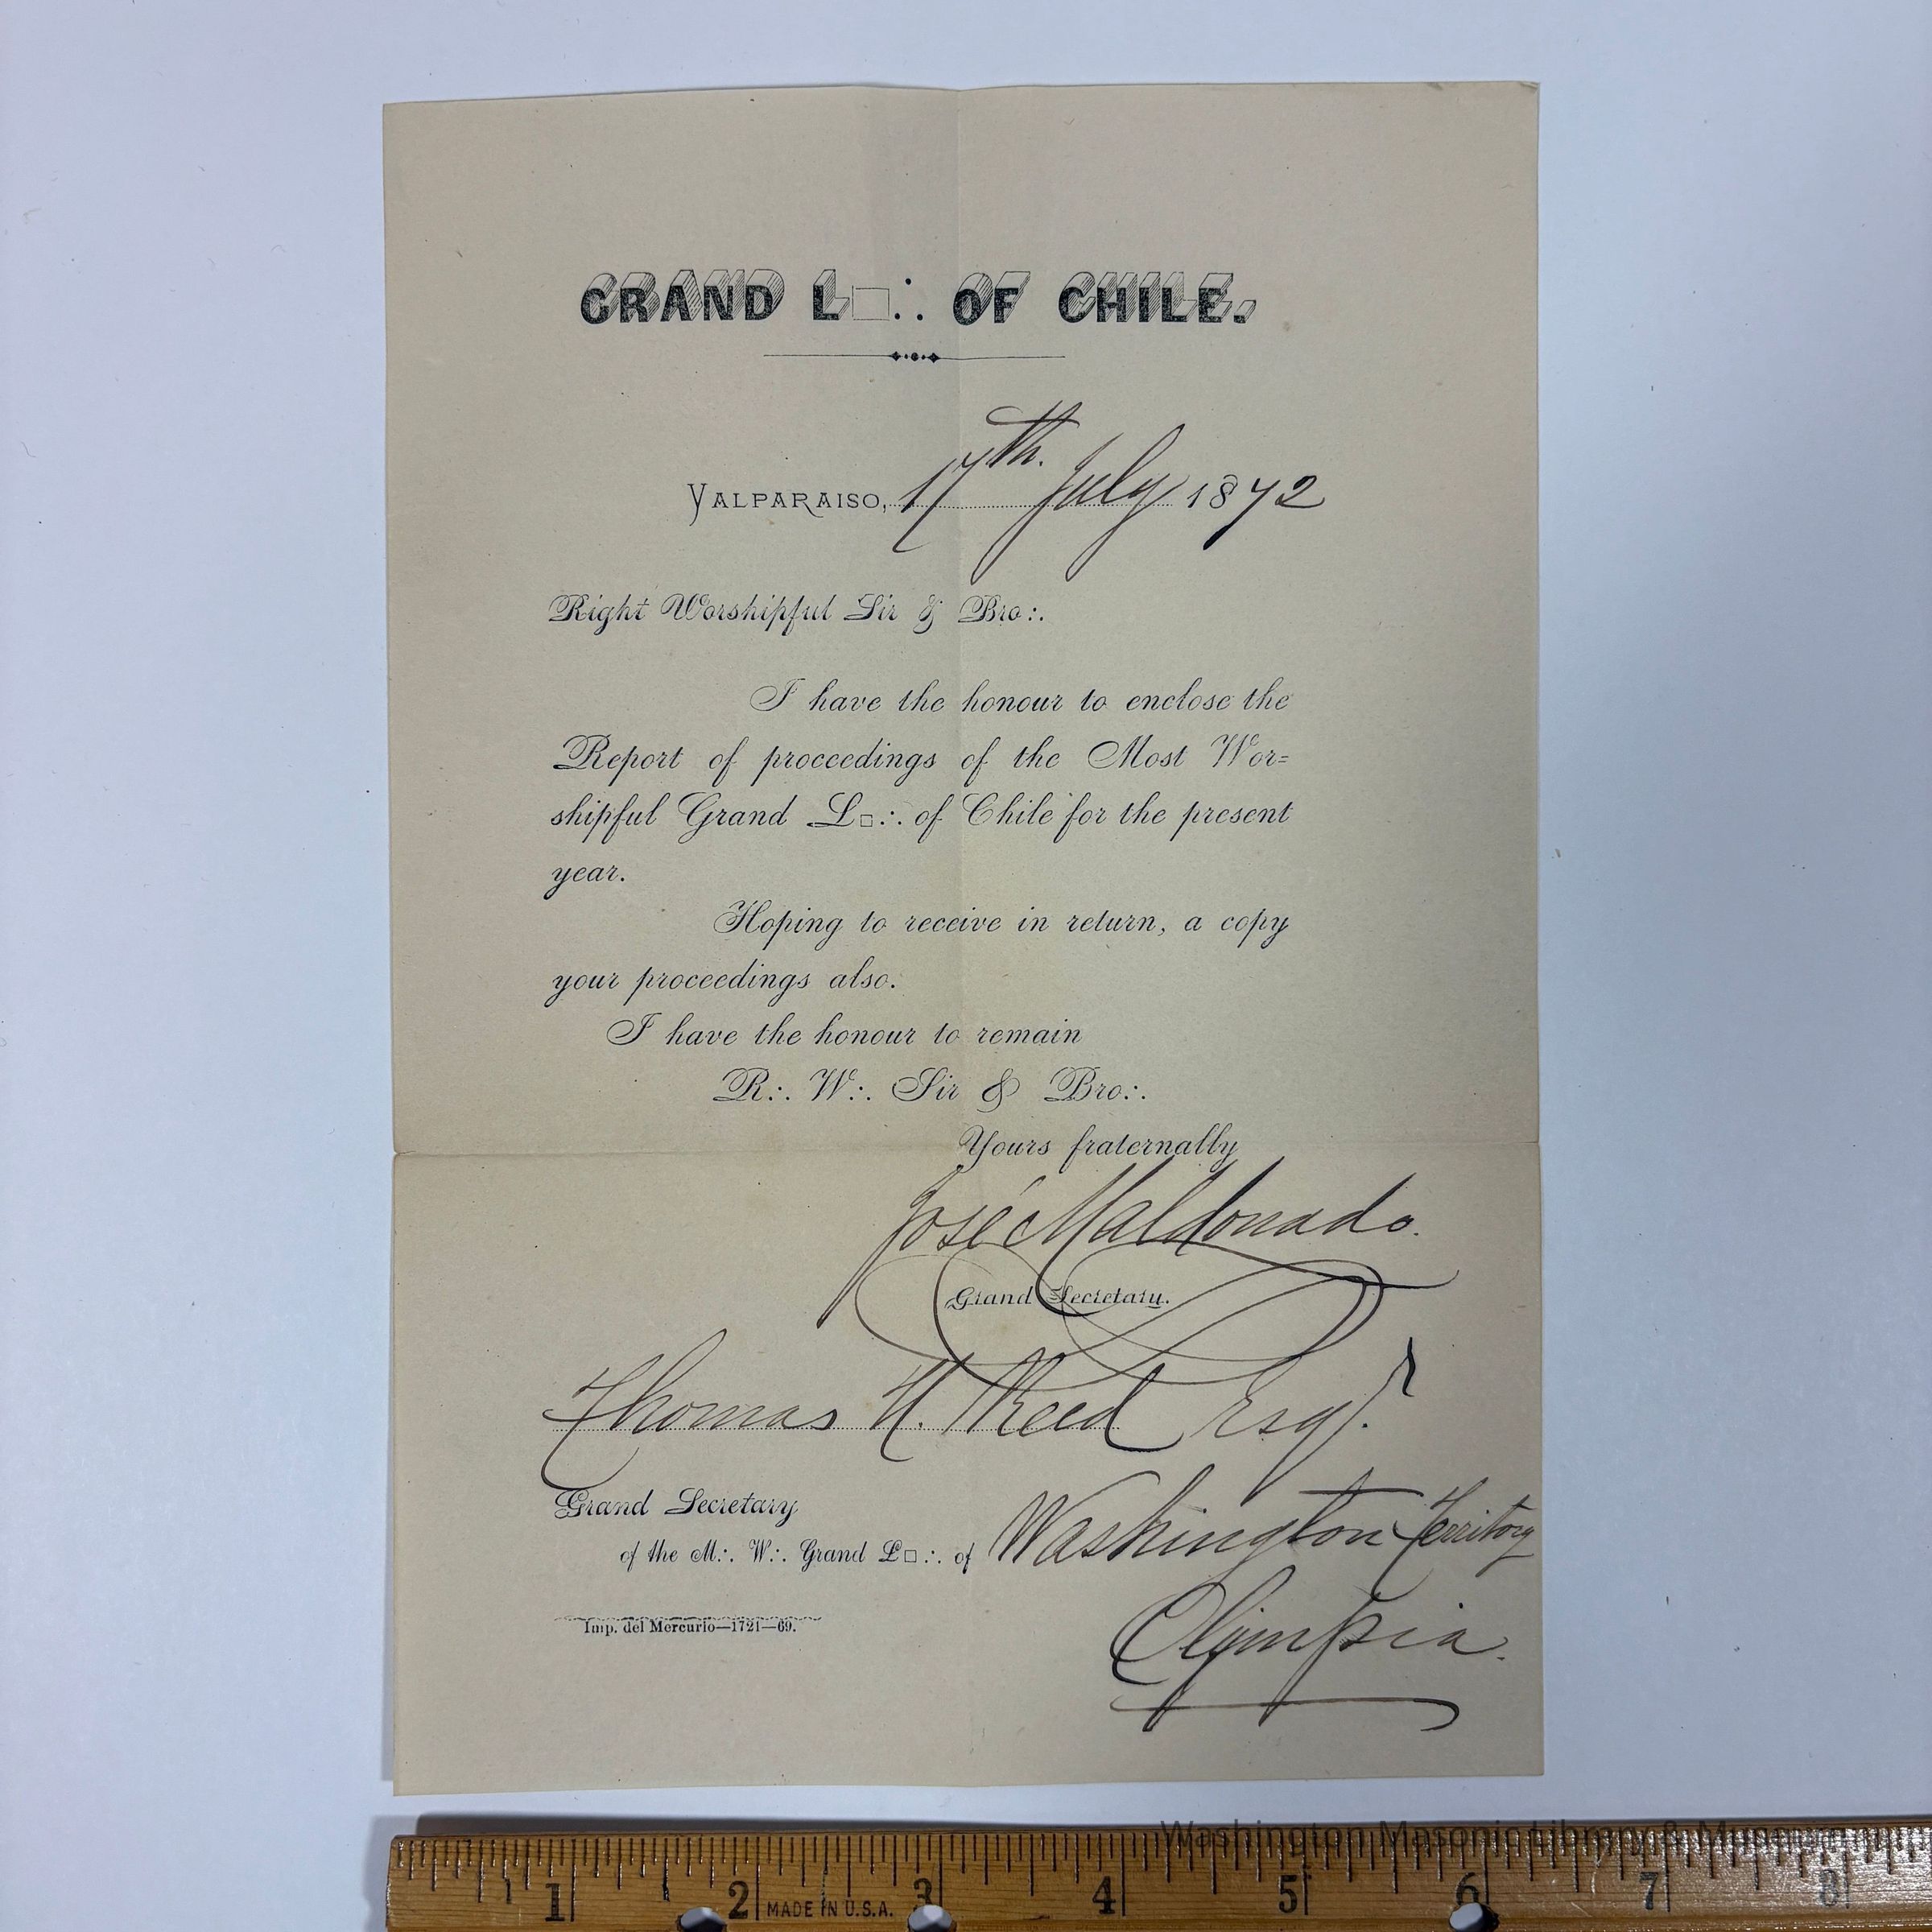 GRAND L□∴ OF CHILE.
VALPARAISO, 17th. July 1872
Right Worshipful Sir & Bro∴
I have the honour to enclose the
Report of proceedings of the Most Wor=
shipful Grand L□∴ of Chile for the present
year.
Hoping to receive in return, a copy
your proceedings also.
I have the honour to remain
R∴ W∴ Sir & Bro∴
Yours fraternally
José Maldonado.
Grand Secretary.
Thomas H. Reed Esqr.
Grand Secretary
of the M∴ W∴ Grand L□∴ of Washington Territory
Olympia.
Imp. del Mercurio—1721—69.
Washington Masonic Library & Museum
1 2 MADE IN U.S.A. 3 4 5 6 7 8